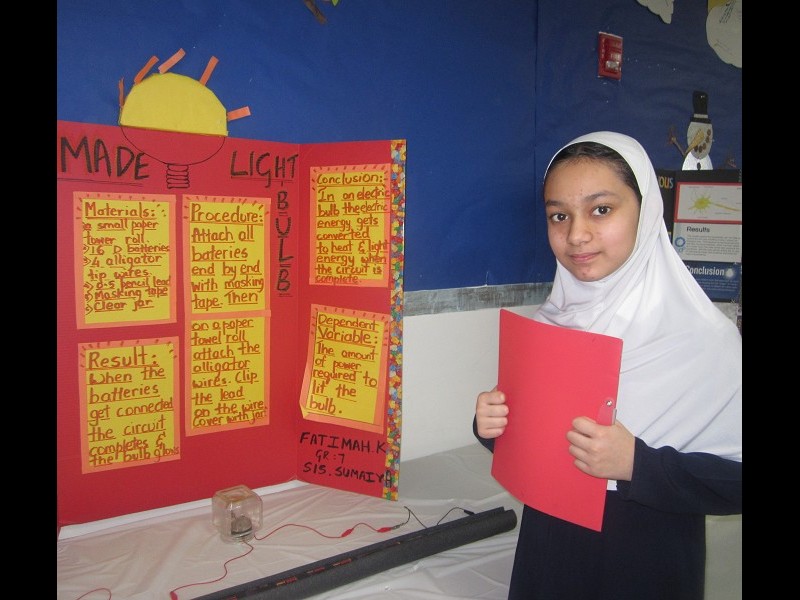 MADE LIGHT
BULB
Materials:
a small paper
tower roll.
16 D batteries
4 alligator
tip wires.
0.5 pencil lead
Masking tape
Clear jar
Procedure:
Attach all
bateries
end by end
with masking
tape. Then
on a paper
towel roll
attach the
alligator
wires. Clip
the lead
on the wire
cover with jar.
Result:
When the
batteries
get connected
the circuit
completes &
the bulb glows
Conclusion:
In an electric
bulb the electric
energy gets
converted
to heat & light
energy when
the circuit is
complete.
Dependent
Variable:
The amount
of power
required to
lit the
bulb.
FATIMAH.K
GR:7
SIS. SUMAIYA
Results
Conclusion